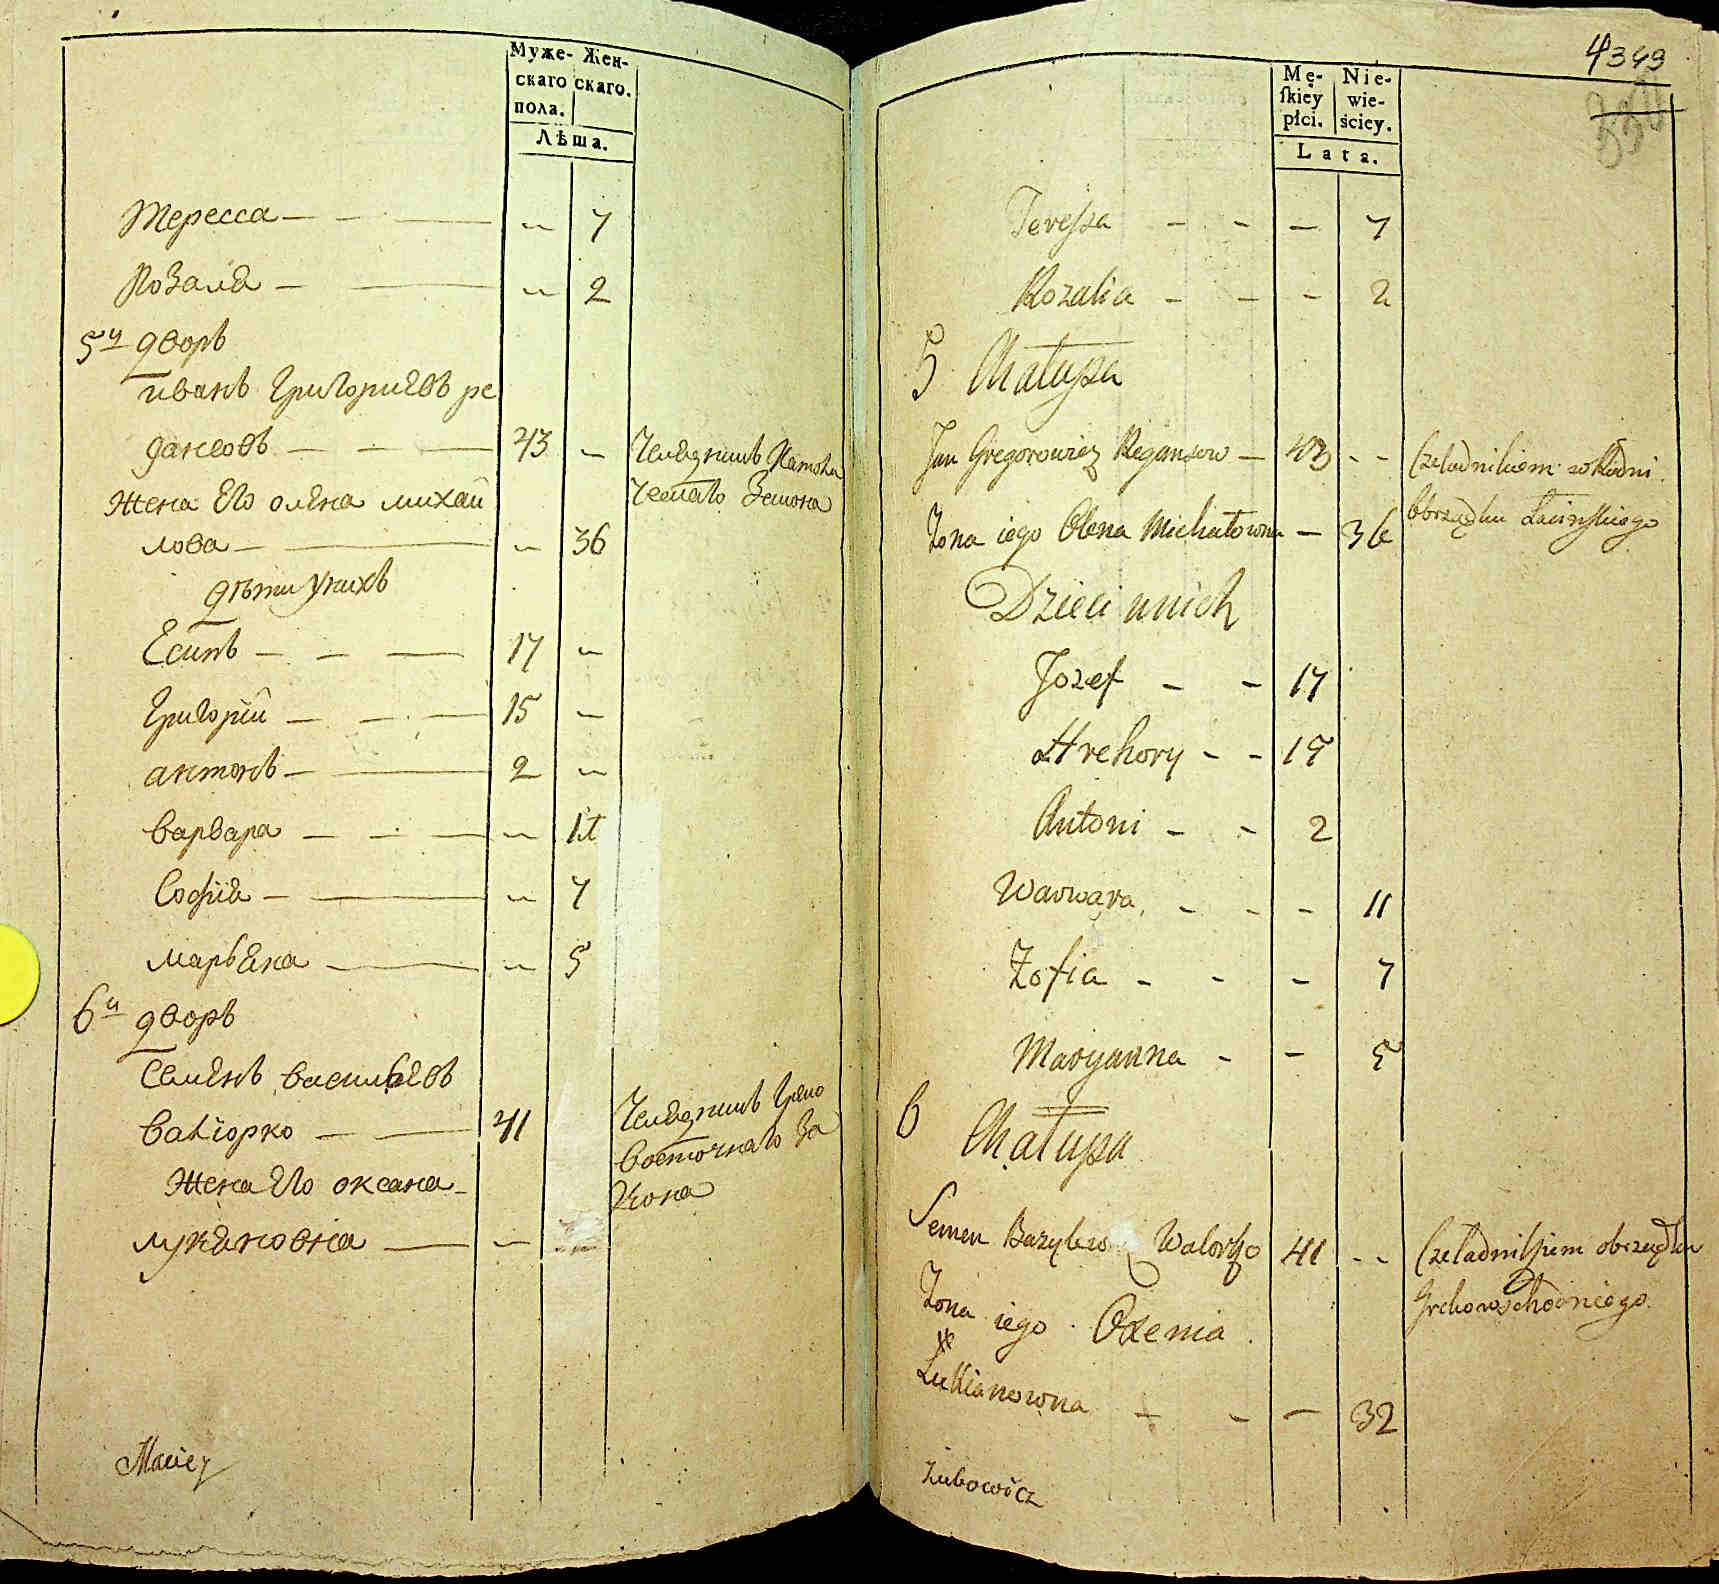 Муже- Жен-
скаго скаго.
пола.
Лѣта.
Тересса — — — „ 7
Розалія — — „ 2
5й дворъ
иванъ Григориевъ ре
дансовъ — — — 43 „ Челядникъ Католи
Жена Его олена михай ческаго Закона
лова — — „ 36
дѣти у нихъ
Есипъ — — — 17 „
Григорій — — — 15 „
антонъ — — 2 „
варвара — — — „ 11
Софія — — „ 7
марьяна — „ 5
6й дворъ
Семенъ васильевъ
41 Челядникъ Греко
восточнаго За
Жена Его оксана кона
лукяновна — „
Maciey
4349
Mę- Nie-
skiey wie-
płci. ściey.
Lata.
Teressa - - - 7
Rozalia - - - 2
5 Chałupa
Jan Gregorowicz Regansow — 43 - - Czeladnikiem
Obrządku Łacinskiego
Zona iego Olena Michałowna — 36
Dzieci unich
Jozef - - 17
Hrehory - - 15
Antoni - - 2
Warwara - - - 11
Zofia - - - 7
Maryanna - - 5
6 Chałupa
Semen Bazylew Walorko 41 - - Czeladnikiem obrządku
Grekowschodniego.
Zona iego Oxenia
Łukianowna - - - 32
Zubowicz